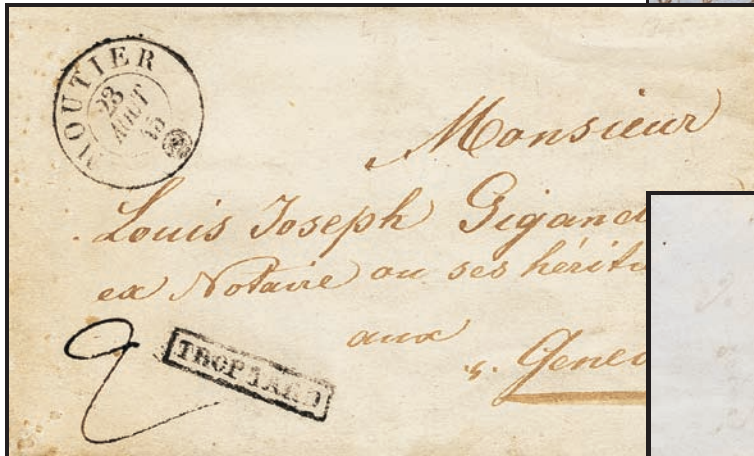 MOUTIER
23
AOUT
45
Monsieur
Louis Joseph Gigand
ex Notaire ou ses hériti
aux
Genev
2
TROP TARD